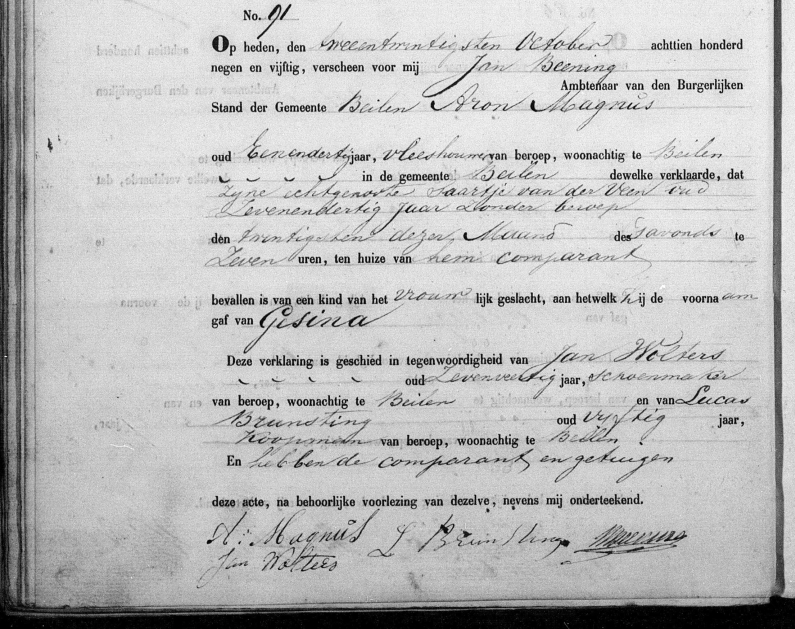 No. 91
Op heden, den tweeentwintigsten October achttien honderd
negen en vijftig, verscheen voor mij Jan Beening
Ambtenaar van den Burgerlijken
Stand der Gemeente Beilen Aron Magnus
oud Eenendertig jaar, vleeshouwer van beroep, woonachtig te Beilen
in de gemeente Beilen dewelke verklaarde, dat
Zyne echtgenoote Saartje van der Veen oud
Zevenendertig Jaar zonder beroep
den twintigsten dezer Maand des savonds te
Zeven uren, ten huize van hem comparant
bevallen is van een kind van het vrouw lijk geslacht, aan hetwelk hij de voornaam
gaf van Gesina
Deze verklaring is geschied in tegenwoordigheid van Jan Wolters
oud Zevenveertig jaar, Schoenmaker
van beroep, woonachtig te Beilen en van Lucas
Brunsting oud vyftig jaar,
Koopman van beroep, woonachtig te Beilen.
En hebben de comparant en getuigen
deze acte, na behoorlijke voorlezing van dezelve, nevens mij onderteekend.
A: Magnus L Brunsting
Jan Wolters